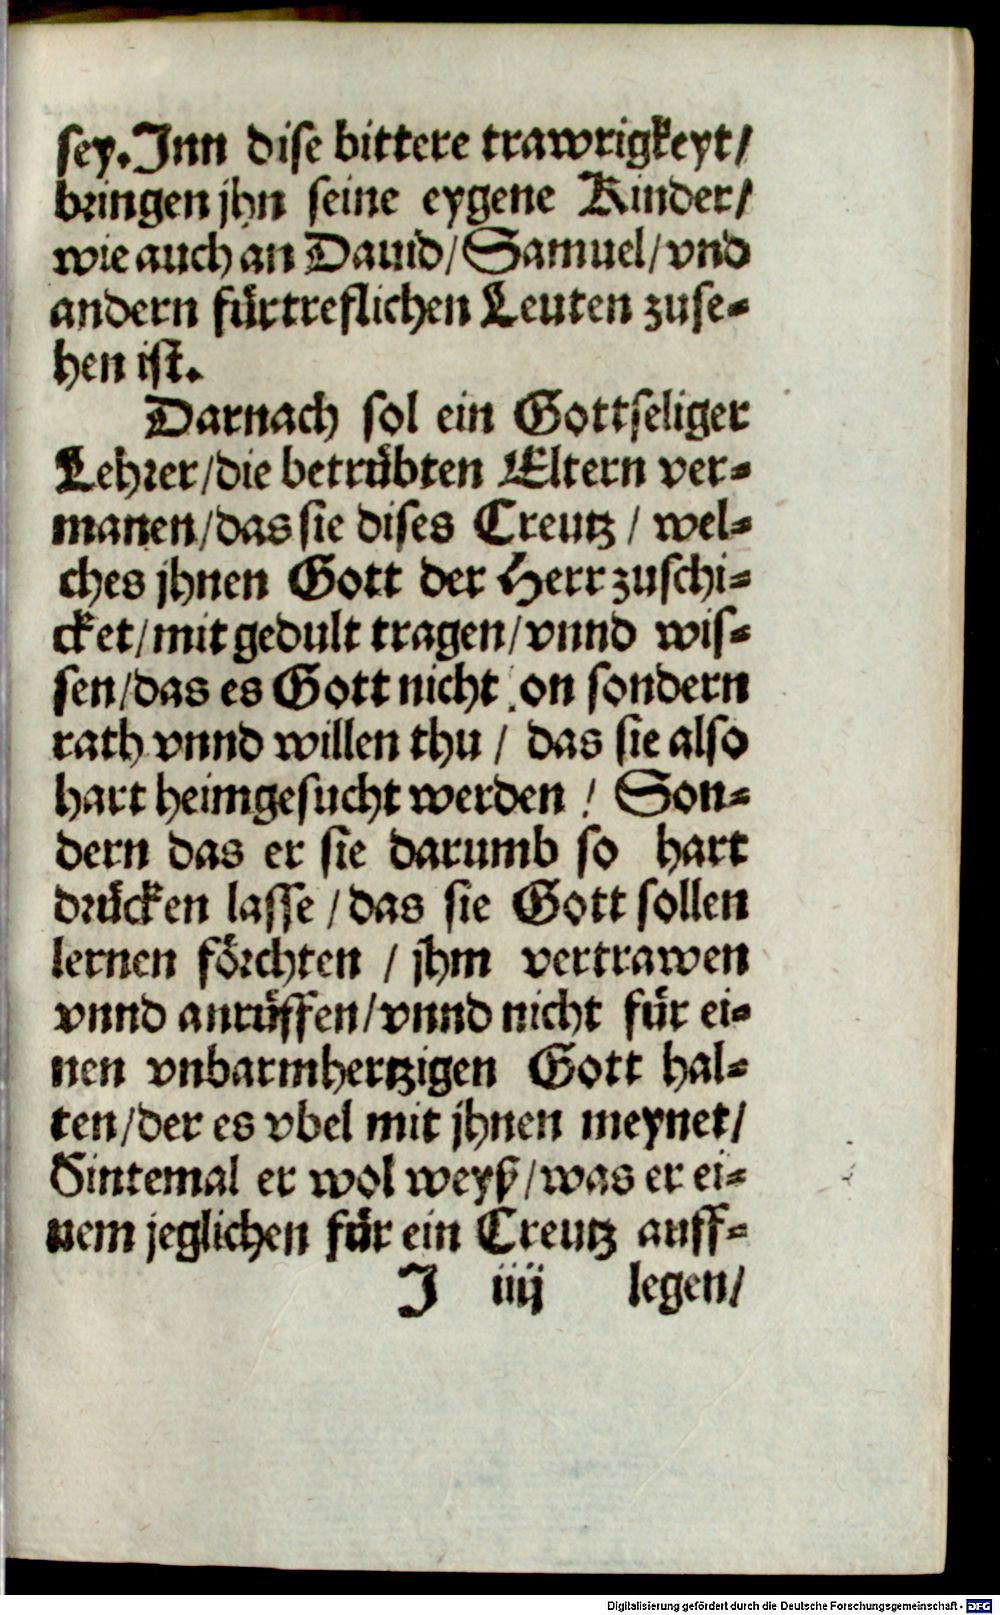 sey. Jnn dise bittere trawrigkeyt/
bringen jhn seine eygene Kinder/
wie auch an Dauid/Samuel/vnd
andern fürtreflichen Leuten zuse-
hen ist.
Darnach sol ein Gottseliger
Lehrer/die betrübten Eltern ver-
manen/das sie dises Creutz / wel-
ches jhnen Gott der Herr zuschi-
cket/mit gedult tragen/vnnd wis-
sen/das es Gott nicht on sondern
rath vnnd willen thu / das sie also
hart heimgesucht werden / Son-
dern das er sie darumb so hart
drücken lasse /das sie Gott sollen
lernen förchten / jhm vertrawen
vnnd anrüffen/vnnd nicht für ei-
nen vnbarmhertzigen Gott hal-
ten/der es vbel mit jhnen meynet/
Sintemal er wol weyß/was er ei-
nem jeglichen für ein Creutz auff-
J iiij legen/
Digitalisierung gefördert durch die Deutsche Forschungsgemeinschaft - DFG